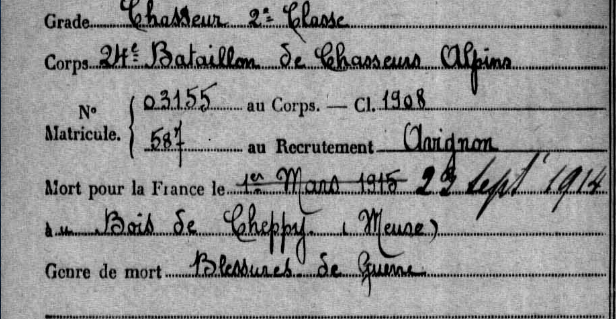 Grade Chasseur 2e Classe
Corps 24e Bataillon de Chasseurs Alpins
No Matricule. 03155 au Corps. — Cl. 1908
587 au Recrutement Avignon
Mort pour la France le 1er Mars 1915 23 sept 1914
au Bois de Cheppy (Meuse)
Genre de mort Blessures de Guerre